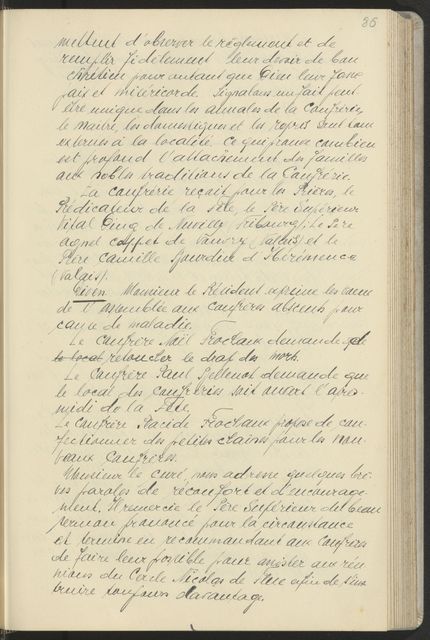 86
mettent d'observer le règlement et de
remplir fidèlement leur devoir de bon
chrétien pour autant que Dieu leur
fait et miséricorde. Signalons un fait peut
être unique dans les annales de la Confrérie,
le maire, les domestiques et les sont tous
externes à la localité. Ce qui prouve combien
est profond l'attachement des familles
aux nobles traditions de la Confrérie.
La confrérie reçoit pour les Prières, le
Prédicateur de la fête, le Père Supérieur
Vital de (Fribourg), le Père
agnel de (Valais) et le
Père Camille Gourdin d'Hérémence
(Valais).
Divers. Monsieur le Président exprime les vœux
de l'assemblée aux confrères absents pour
cause de maladie.
Le confrère Noël demande de
le local retoucher le drap des morts.
Le Confrère Paul demande que
le local des confrères soit ouvert l'après
midi de la Fête.
Le Confrère Placide propose de con-
fectionner des petites chaises pour les nou-
veaux Confrères.
Monsieur le curé, nous adresse quelques brè-
ves paroles de réconfort et d'encourage-
ment, Il remercie le Père Supérieur del beau
sermon prononcé pour la circonstance
et termine en recommandant aux Confrères
de faire leur possible pour assister aux réu-
nions du Cercle Nicolas de Flüe afin de s'ins-
truire toujours davantage.